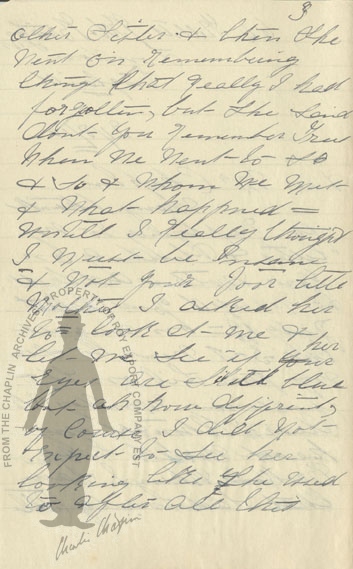 3
other Sister & then she
went on Remembering
thing that really I had
forgotten, but she said
dont you remember Fred
When we went to So
& So & whom we met
& what happned =
Well I Really thought
I must be Insane
& Not your Poor little
Mother I asked her
to look at me &
let me see if her
Eyes are still blue
but ah how different,
of Course I did Not
Expect to see her
looking like she used
to after all that
FROM THE CHAPLIN ARCHIVES PROPERTY OF ROY EXPORT COMPANY EST
Charlie Chaplin